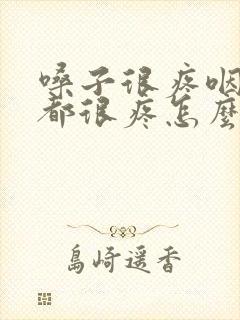 嗓子很疼咽
都很疼怎麼
島崎遥香